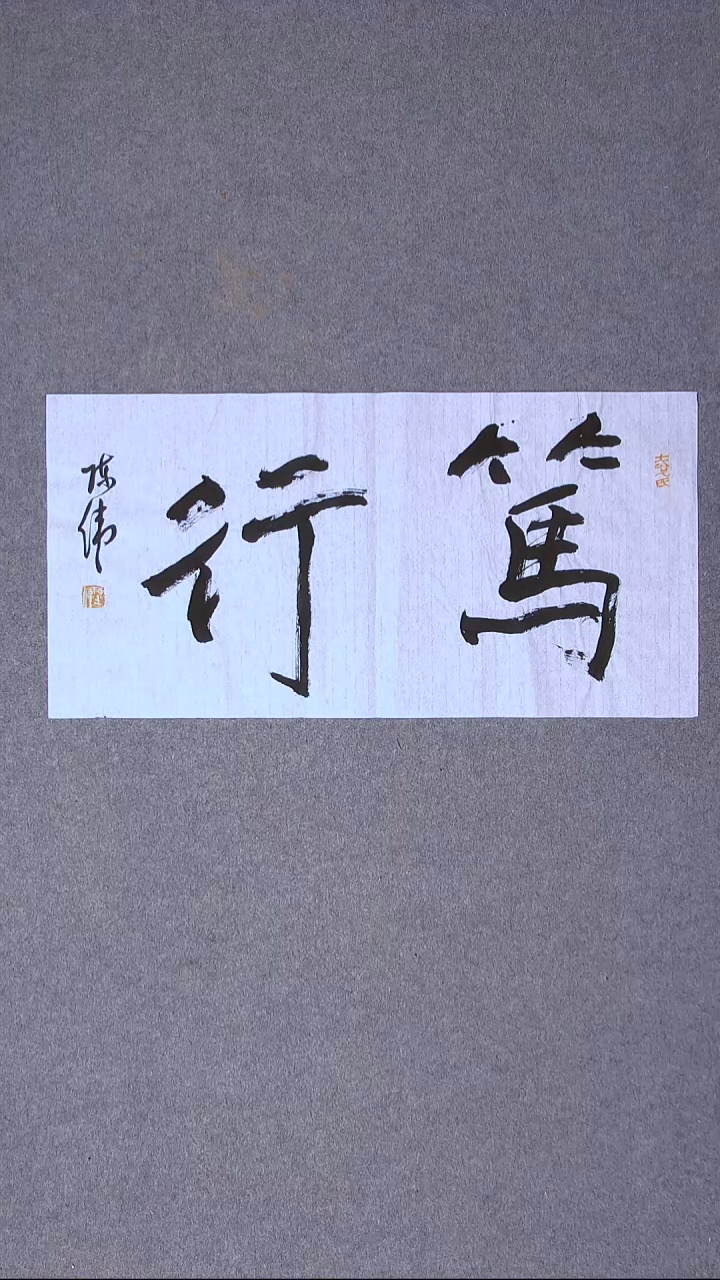 篤行
陈伟